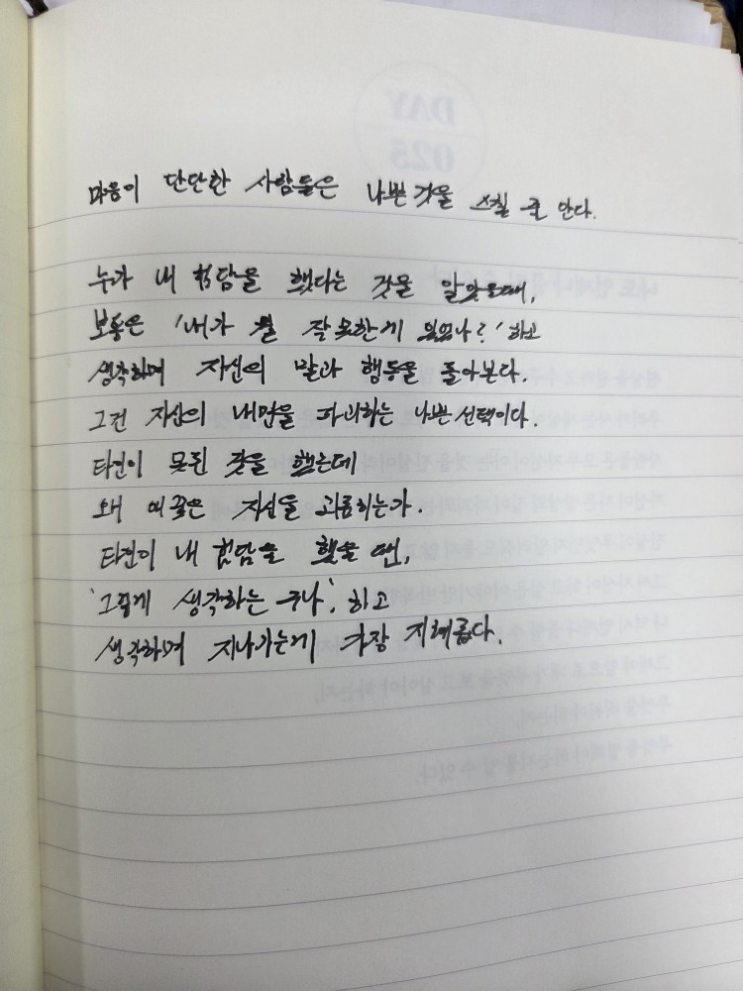 DAY
025
마음이 단단한 사람들은 나쁜 것을 스칠 줄 안다.
누가 내 험담을 했다는 것을 알았을때,
보통은 '내가 뭘 잘못한게 있었나?' 하고
생각하며 자신의 말과 행동을 돌아본다.
그건 자신의 내면을 파괴하는 나쁜 선택이다.
타인이 못된 것을 했는데
왜 애꿎은 자신을 괴롭히는가.
타인이 내 험담을 했을 땐,
'그렇게 생각하는 구나', 하고
생각하며 지나가는게 가장 지혜롭다.